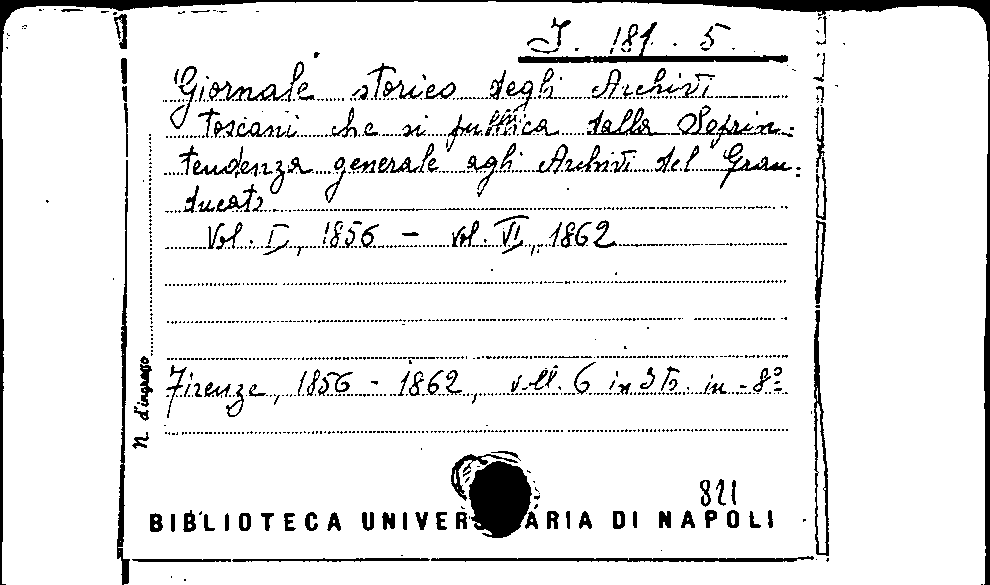 J. 181. 5.
Giornale storico degli Archivi
toscani che si pubblica dalla Soprin=
tendenza generale agli Archivi del Gran=
ducato.
Vol. I, 1856 - vol. VI, 1862
Firenze, 1856 - 1862, voll. 6 in 3 tt. in - 8º
N. d'ingresso
821
BIBLIOTECA UNIVERS ARIA DI NAPOLI